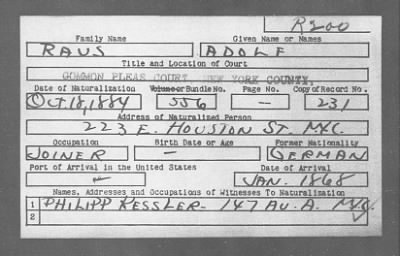 R200
Family Name Given Name or Names
RAUS ADOLF
Title and Location of Court
COMMON PLEAS COURT, NEW YORK COUNTY.
Date of Naturalization Volume or Bundle No. Page No. Copy of Record No.
Oct. 18, 1884 556 — 231
Address of Naturalized Person
223 E. HOUSTON ST. NYC.
Occupation Birth Date or Age Former Nationality
JOINER — GERMAN
Port of Arrival in the United States Date of Arrival
— JAN. 1868
Names, Addresses and Occupations of Witnesses To Naturalization
1 PHILIPP KESSLER - 147 AV. A. NYC.
2